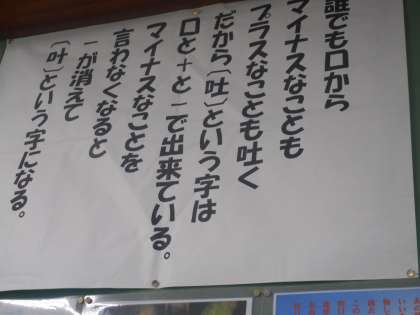 誰でも口から
マイナスなことも
プラスなことも吐く
だから〔吐〕という字は
口と＋と－で出来ている。
マイナスなことを
言わなくなると
－が消えて
〔叶〕という字になる。